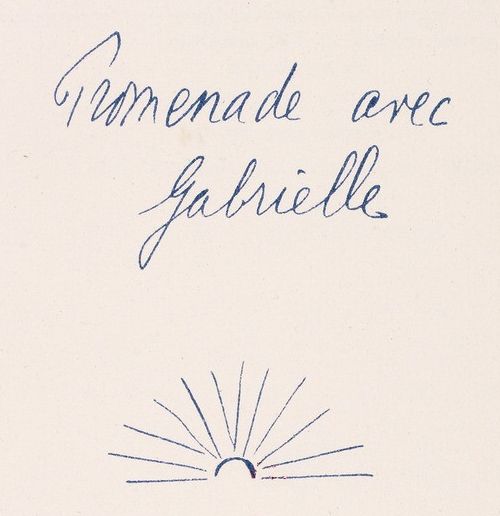 Promenade avec
Gabrielle